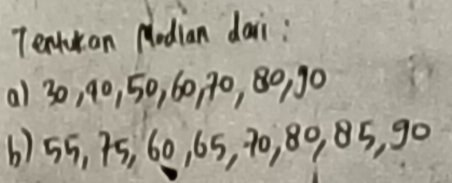 Tentukan Median dari :
a) 30, 40, 50, 60, 70, 80, 90
b) 55, 75, 60, 65, 70, 80, 85, 90